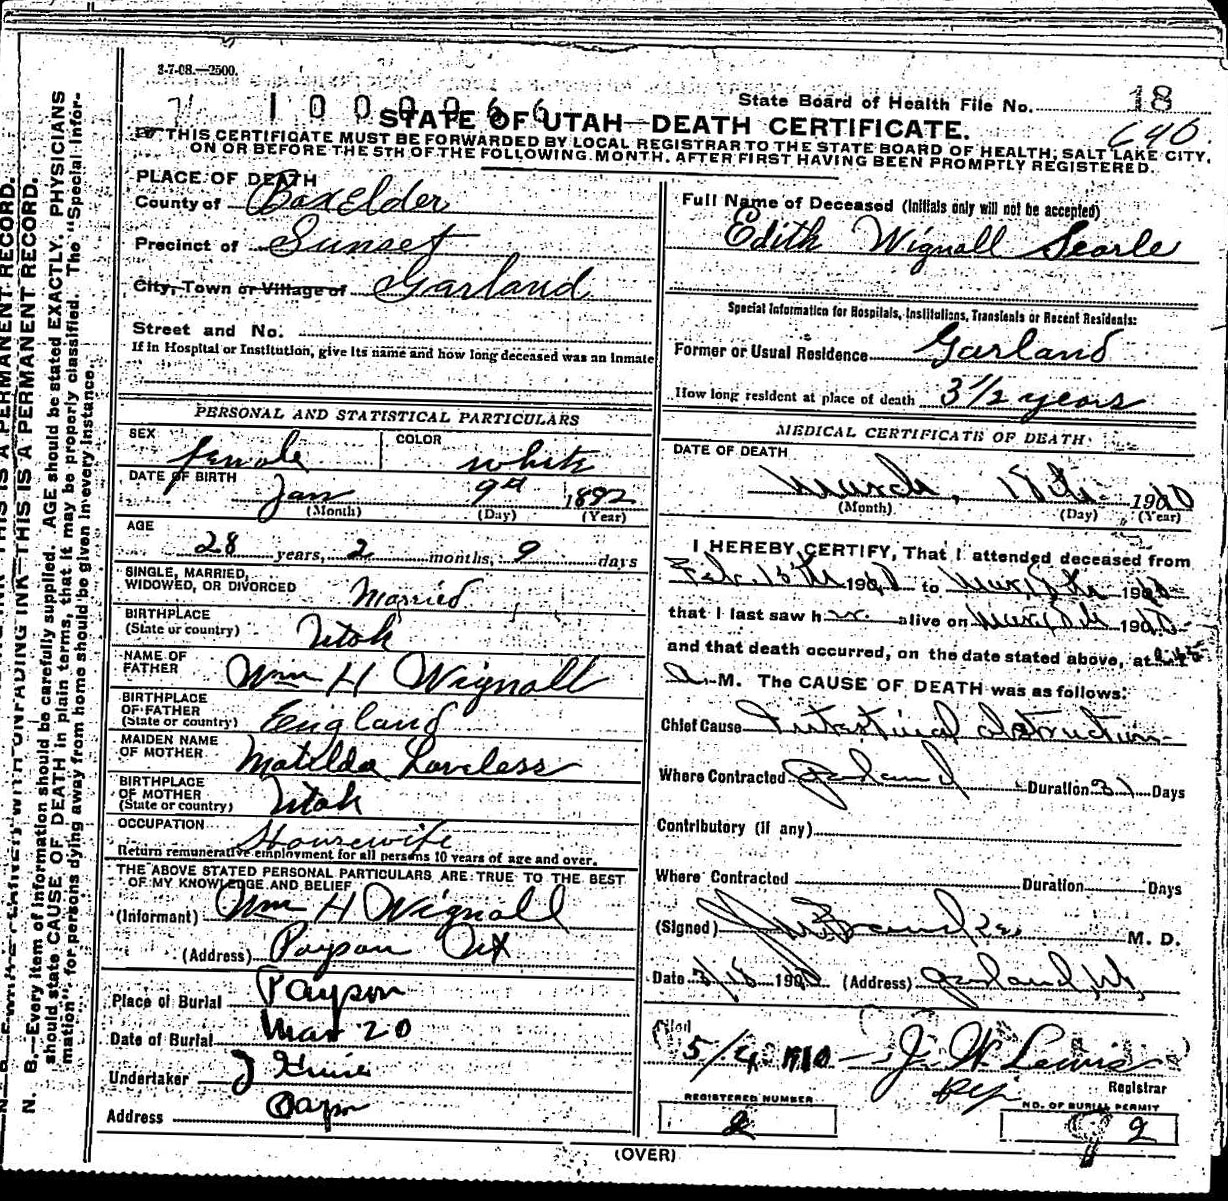 3-7-08.—2500.
State Board of Health File No. 18
1000066
690
STATE OF UTAH—DEATH CERTIFICATE.
THIS CERTIFICATE MUST BE FORWARDED BY LOCAL REGISTRAR TO THE STATE BOARD OF HEALTH, SALT LAKE CITY,
ON OR BEFORE THE 5TH OF THE FOLLOWING MONTH, AFTER FIRST HAVING BEEN PROMPTLY REGISTERED.
PLACE OF DEATH
County of Boxelder
Precinct of Sunset
City, Town or Village of Garland
Street and No.
If in Hospital or Institution, give its name and how long deceased was an inmate
PERSONAL AND STATISTICAL PARTICULARS
SEX female COLOR white
DATE OF BIRTH Jan 9th 1892
(Month) (Day) (Year)
AGE
28 years, 2 months, 9 days
SINGLE, MARRIED,
WIDOWED, OR DIVORCED Married
BIRTHPLACE
(State or country) Utah
NAME OF
FATHER Wm H Wignall
BIRTHPLACE
OF FATHER
(State or country) England
MAIDEN NAME
OF MOTHER Matilda Loveless
BIRTHPLACE
OF MOTHER
(State or country) Utah
OCCUPATION Housewife
Return remunerative employment for all persons 10 years of age and over.
THE ABOVE STATED PERSONAL PARTICULARS ARE TRUE TO THE BEST
OF MY KNOWLEDGE AND BELIEF
(Informant) Wm H Wignall
(Address) Payson Ut
Place of Burial Payson
Date of Burial Mar 20
Undertaker J
Address Payson
Full Name of Deceased (Initials only will not be accepted)
Edith Wignall Searle
Special Information for Hospitals, Institutions, Transients or Recent Residents:
Former or Usual Residence Garland
How long resident at place of death 3 1/2 years
MEDICAL CERTIFICATE OF DEATH
DATE OF DEATH
March, 18th 1910
(Month) (Day) (Year)
I HEREBY CERTIFY, That I attended deceased from
Feb. 15th 1910 to Mar 18th 1910
that I last saw her alive on Mar 18th 1910
and that death occurred, on the date stated above, at
A. M. The CAUSE OF DEATH was as follows:
Chief Cause Intestinal obstruction
Where Contracted Garland Duration 31 Days
Contributory (if any)
Where Contracted Duration Days
(Signed) M. D.
Date 3/18 1910 (Address) Garland, Ut,
Filed
5/4 1910 J. W. Lewis
Registrar
REGISTERED NUMBER
2
NO. OF BURIAL PERMIT
2
(OVER)
N. B.—Every item of information should be carefully supplied. AGE should be stated EXACTLY. PHYSICIANS
should state CAUSE OF DEATH in plain terms, that it may be properly classified. The "Special Infor-
mation" for persons dying away from home should be given in every instance.
UNFADING INK—THIS IS A PERMANENT RECORD.